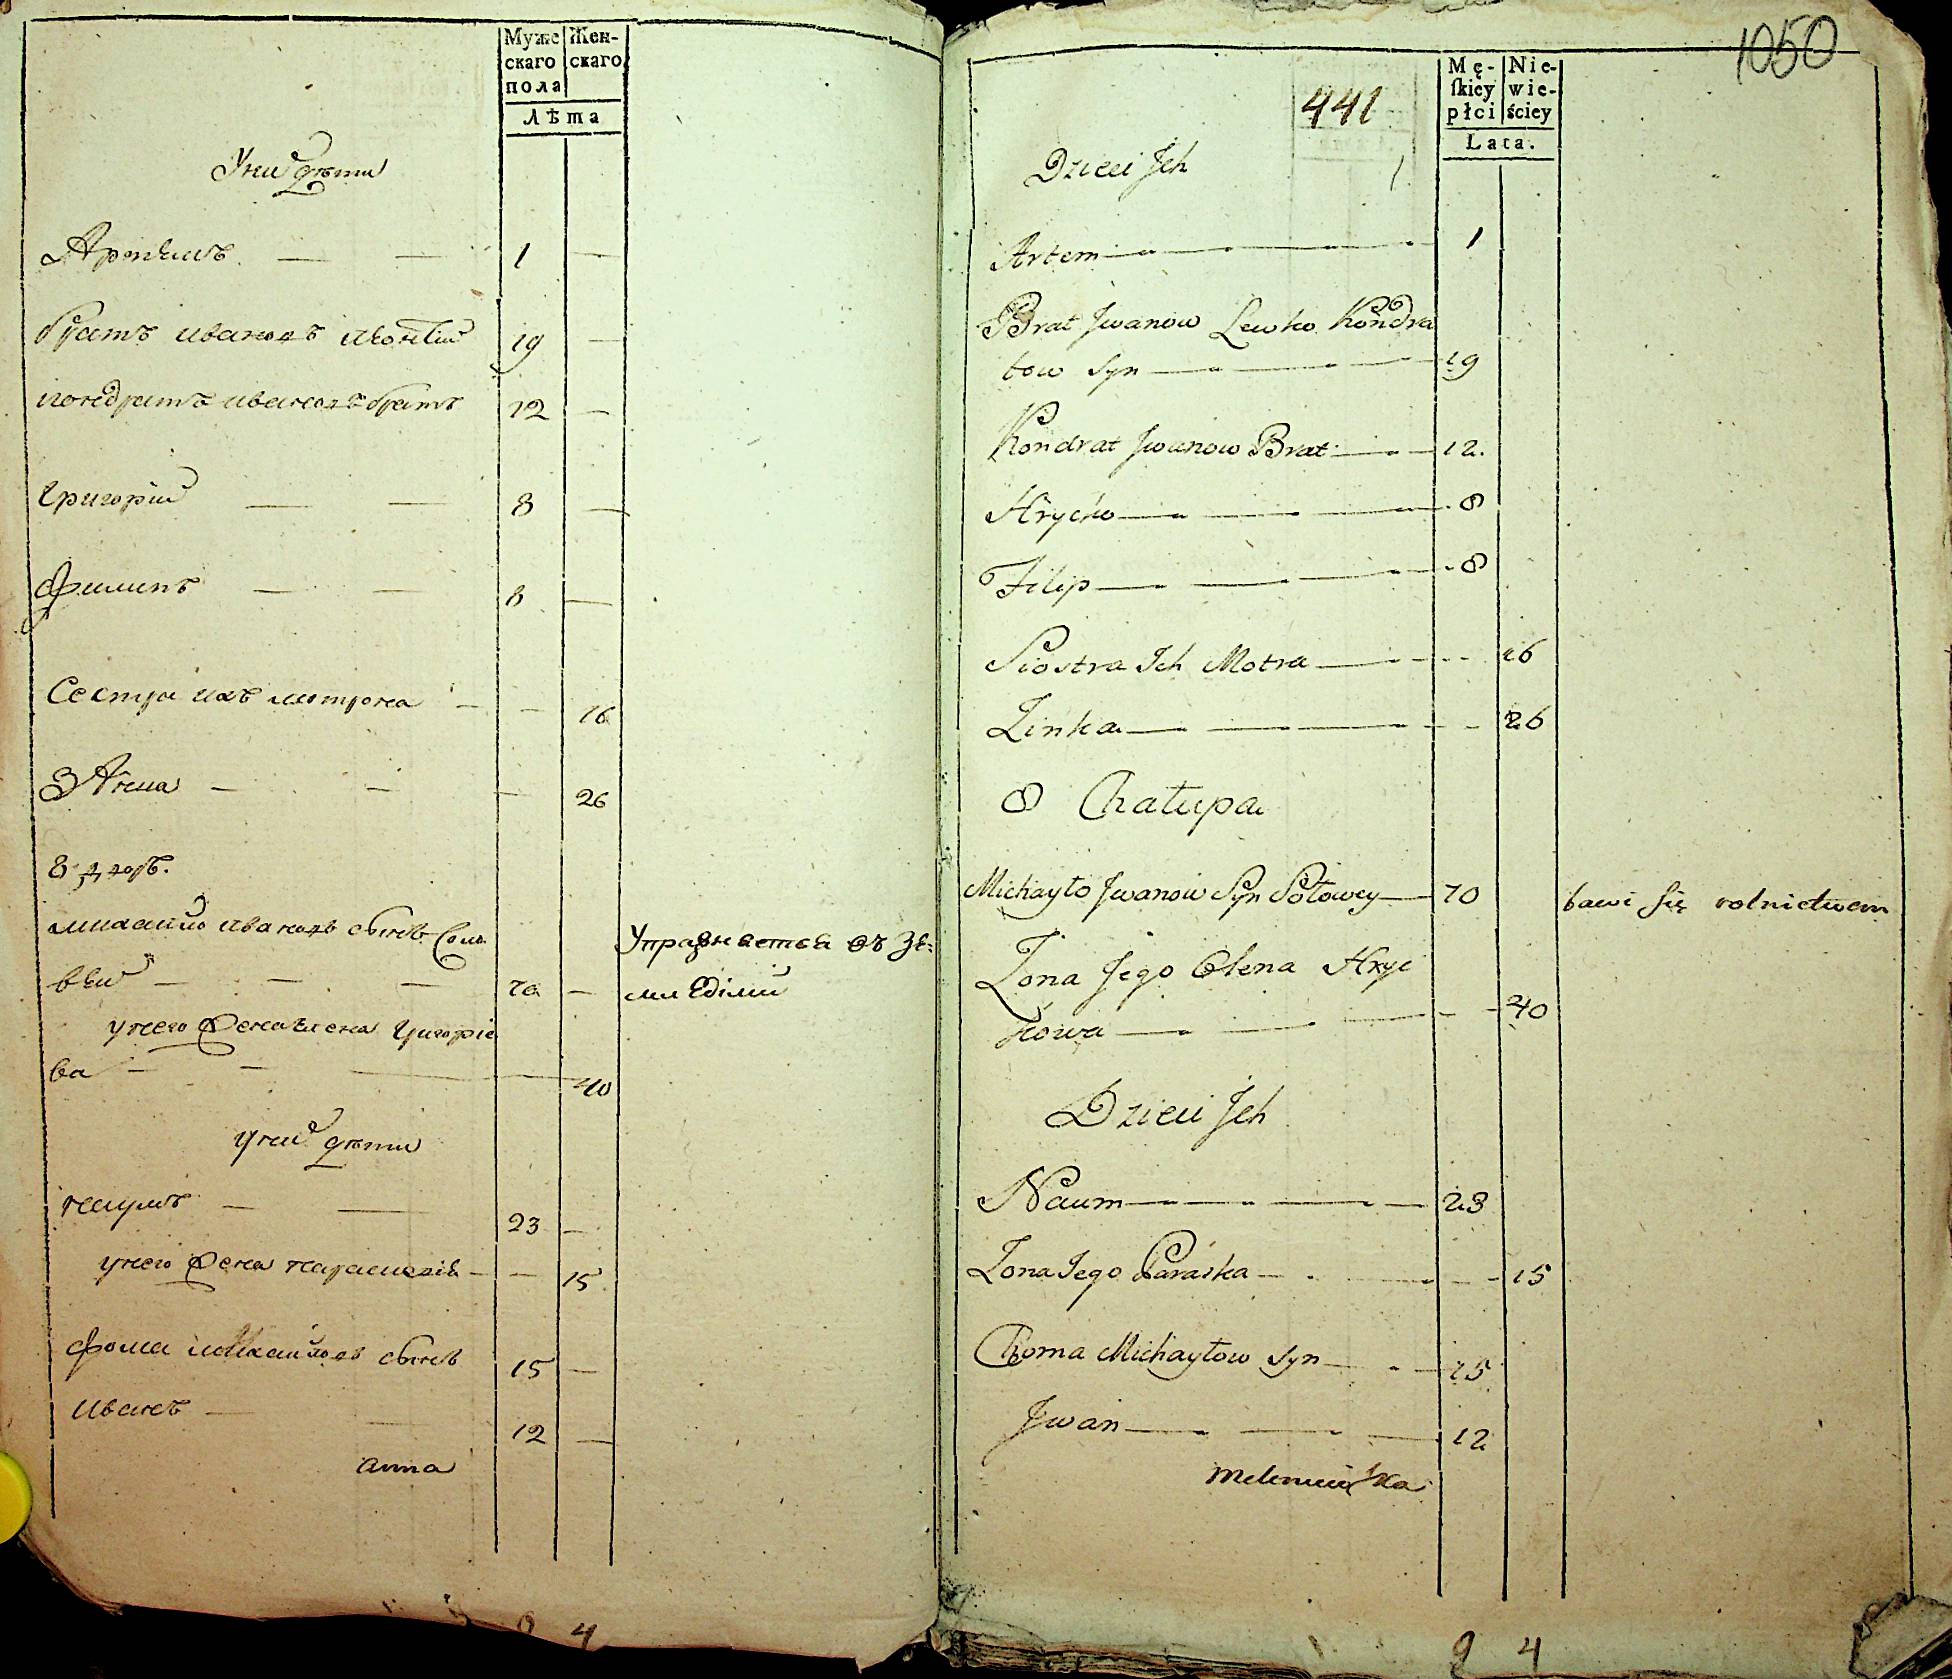 Муже
скаго
пола
Жен-
скаго
Лѣта
У них дѣти
Артемъ 1
братъ ивановъ леонтий 19
кондратъ ивановъ братъ 12
Григорiй 8
Филипъ 8
Сестра ихъ мотрона 16
26
8 дворъ.
михайло ивановъ сынъ Соло
вей 70
Упражняется въ зе=
мледѣлiи
у него жена елена Григорiе
ва 40
у них дѣти
наумъ 23
у него жена параскевiя 15
фома михайловъ сынъ 15
иванъ 12
анна
9 4
1050
441
Mę-
skiey
płci
Nie-
wie-
ściey
Lata.
Dzieci Jch
Artem 1
Brat Jwanow Lewko Kondra
tow Syn 19
Kondrat Jwanow Brat 12.
Hryćko 8
Filip 8
Siostra Ich Motra 16
Zinka 26
8 Chałupa
Michayło Jwanow Syn Sołowey 70 bawi się rolnictwem
Żona Jego Olena Hryć
kowa 40
Dzieci Jch
Naum 23
Żona Jego Paraska 15
Choma Michayłow Syn 15
Jwan 12
9 4